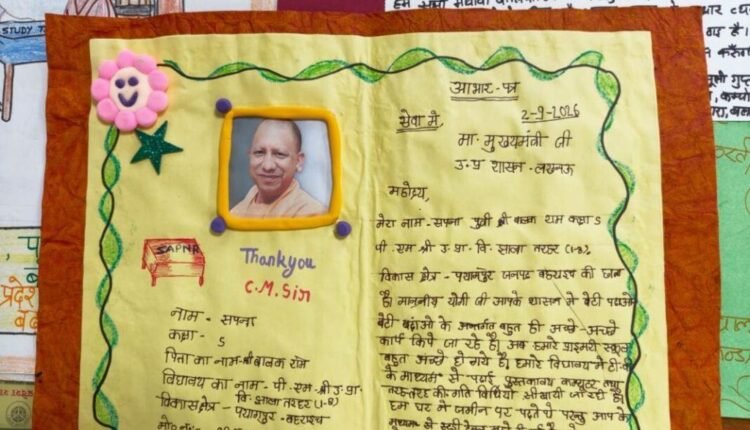 STUDY T
आभार-पत्र
2-9-2026
सेवा में,
मा. मुख्यमंत्री जी
उ.प्र शासन-लखनऊ
महोदय,
मेरा नाम - सपना पुत्री श्री बालक राम कक्षा 5
पी. एम श्री उ. प्रा. वि. झाला तरहर (1-8)
विकास क्षेत्र - पयागपुर जनपद बहराइच की छात्रा
है। माननीय योगी जी आपके शासन में बेटी पढ़ाओ
बेटी बढ़ाओ के अन्तर्गत बहुत ही अच्छे-अच्छे
कार्य किये जा रहे हैं। अब हमारे प्राइमरी स्कूल
बहुत अच्छे हो गये हैं। हमारे विद्यालय में टी.वी
के माध्यम से पढ़ाई पुस्तकालय कम्प्यूटर तथा
तरह-तरह की गति विधियाँ सीखायी जा रही हैं।
हम घर में जमीन पर पढ़ते थे परन्तु आप के
SAPNA
Thankyou
C.M.Sir
नाम - सपना
कक्षा - 5
पिता का नाम - श्री बालक राम
विद्यालय का नाम - पी. एम. श्री उ. प्रा.
वि. झाला तरहर (1-8)
विकास क्षेत्र - पयागपुर - बहराइच